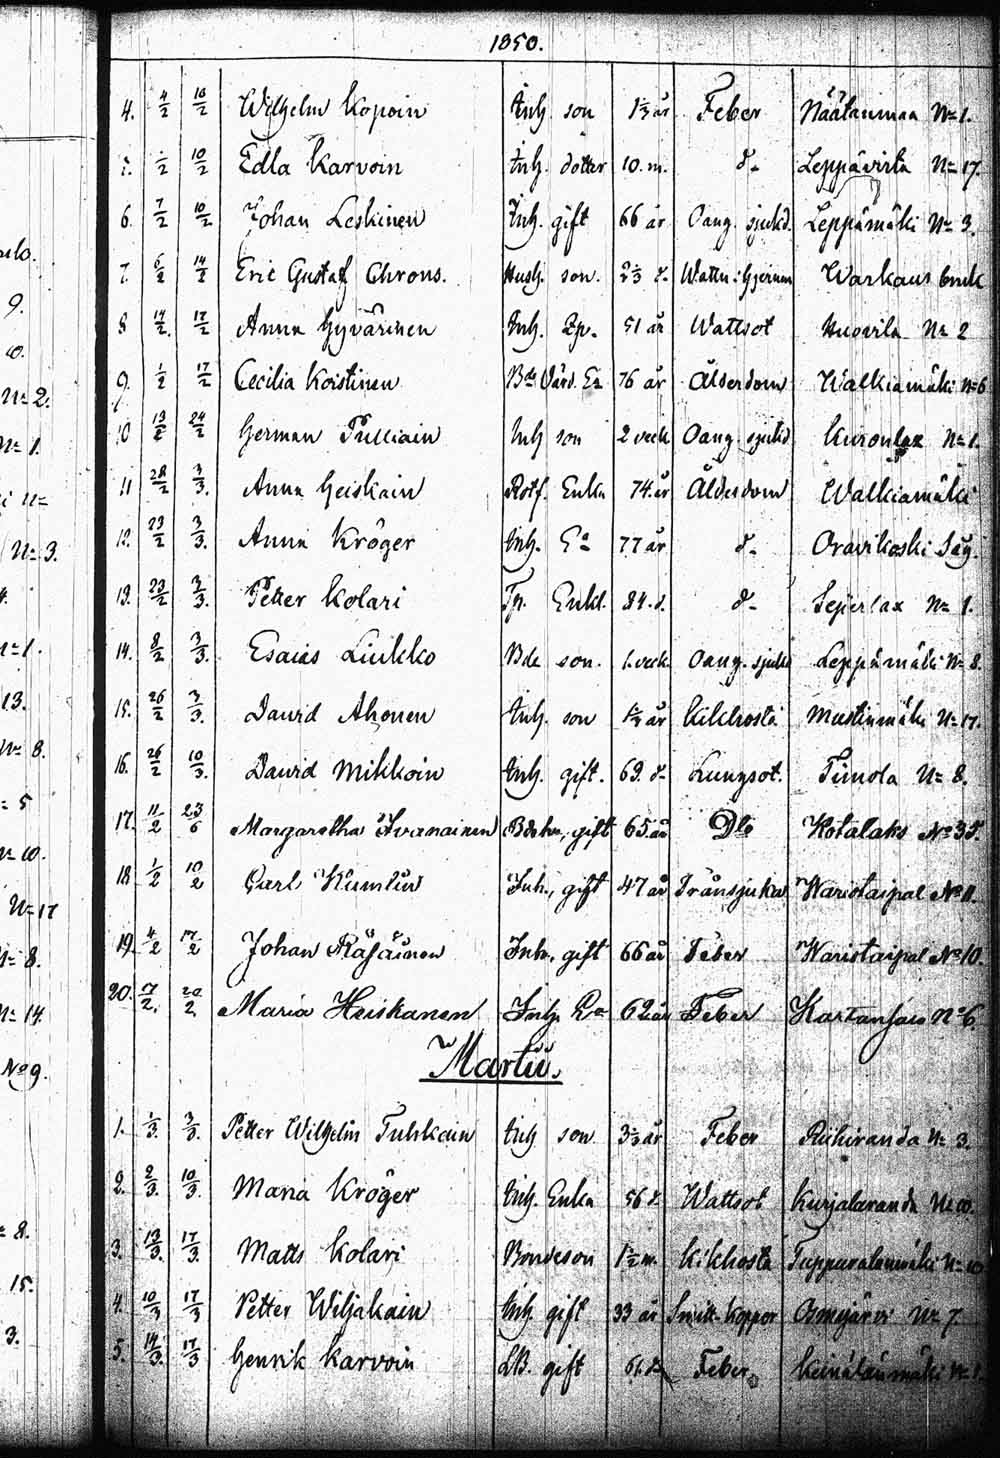 1850.
4. 4/2 10/2 Wilhelm Kopoin Inh. son 1 1/3 år Feber Näätänmaa No 1.
/2 10/2 Edla Karvoin Inh. dotter 10. m. d- Leppävirta No 17.
6. 7/2 10/2 Johan Leskinen Inh. gift 66 år Oang. sjukd. Leppämäki No 3.
7. 6/2 14/2 Eric Gustaf Chrons. Hush. son. 2 2/3 d. Wattu i Hjernan Warkaus bruk
8 14/2. 17/2 Anna Hyvärinen Inh. Pp. 51 år Wattsot Huovila No 2
9. 1/2 17/2 Cecilia Koistinen Bde Värd. Ea 76 år Ålderdom Walkiamäki No 6
10 13/2 24/2 Herman Pulliain Inh son 2 veck Oang. sjukd Kuronlax No 1.
11 28/2 3/3. Anna Heiskain Rotf. Enka 74. år Ålderdom Walkiamäki
12. 23/2 3/3. Anna Kröger Inh. Ea 77 år d- Oravikoski Såg.
13. 23/2 3/3. Petter Kolari Tp. Enkl. 84. d. d- Seijerlax No 1.
14. 8/2 3/3. Esaias Liukko Bde son. 1. veck Oang. sjukd Leppämäki No 8.
15. 26/2 3/3. David Ahonen Inh. son år Kikhosta Mustinmäki No 17.
16. 26/2 10/3. David Mikkoin Inh. gift. 69. d- Lungsot. Timola No 8.
17. 11/2 23/6 Margaretha Ivanainen Bdehu, gift 65. år Dto Kotalaks No 35.
18 1/2 10/2 Carl Kumlin Inh., gift 47 år Trånsjuka Waristaipal No 11.
19. 4/2 17/2 Johan Räsäinen Inh., gift 66 år Feber Waristaipal No 10.
20. 17/2. 20/2 Maria Heiskanen Inh Ea 62 år Feber No 6
Martii.
1. 1/3. 3/3. Petter Wilhelm Tuhkain Inh son 3 1/3 år Feber Riihiranda No 3.
2. 2/3. 10/3. Maria Kröger Inh. Enka 56 d. Wattsot Kurjalaranda No 10.
3. 13/3. 17/3. Matts Kolari Bondeson 1 1/2 m. Kikhosta Tuppuralanmäki No 10
4. 10/3 17/3 Petter Wiljakain Inh. gift 33 år Smitt-koppor Osmajärvi No 7.
5. 14/3. 17/3 Henrik Karvoin LB. gift 61. d. Feber Keinälänmäki No 1.
9.
No 2.
No 1.
No 3.
13.
No 8.
No 17
No 14.
No 9.
15.
3.